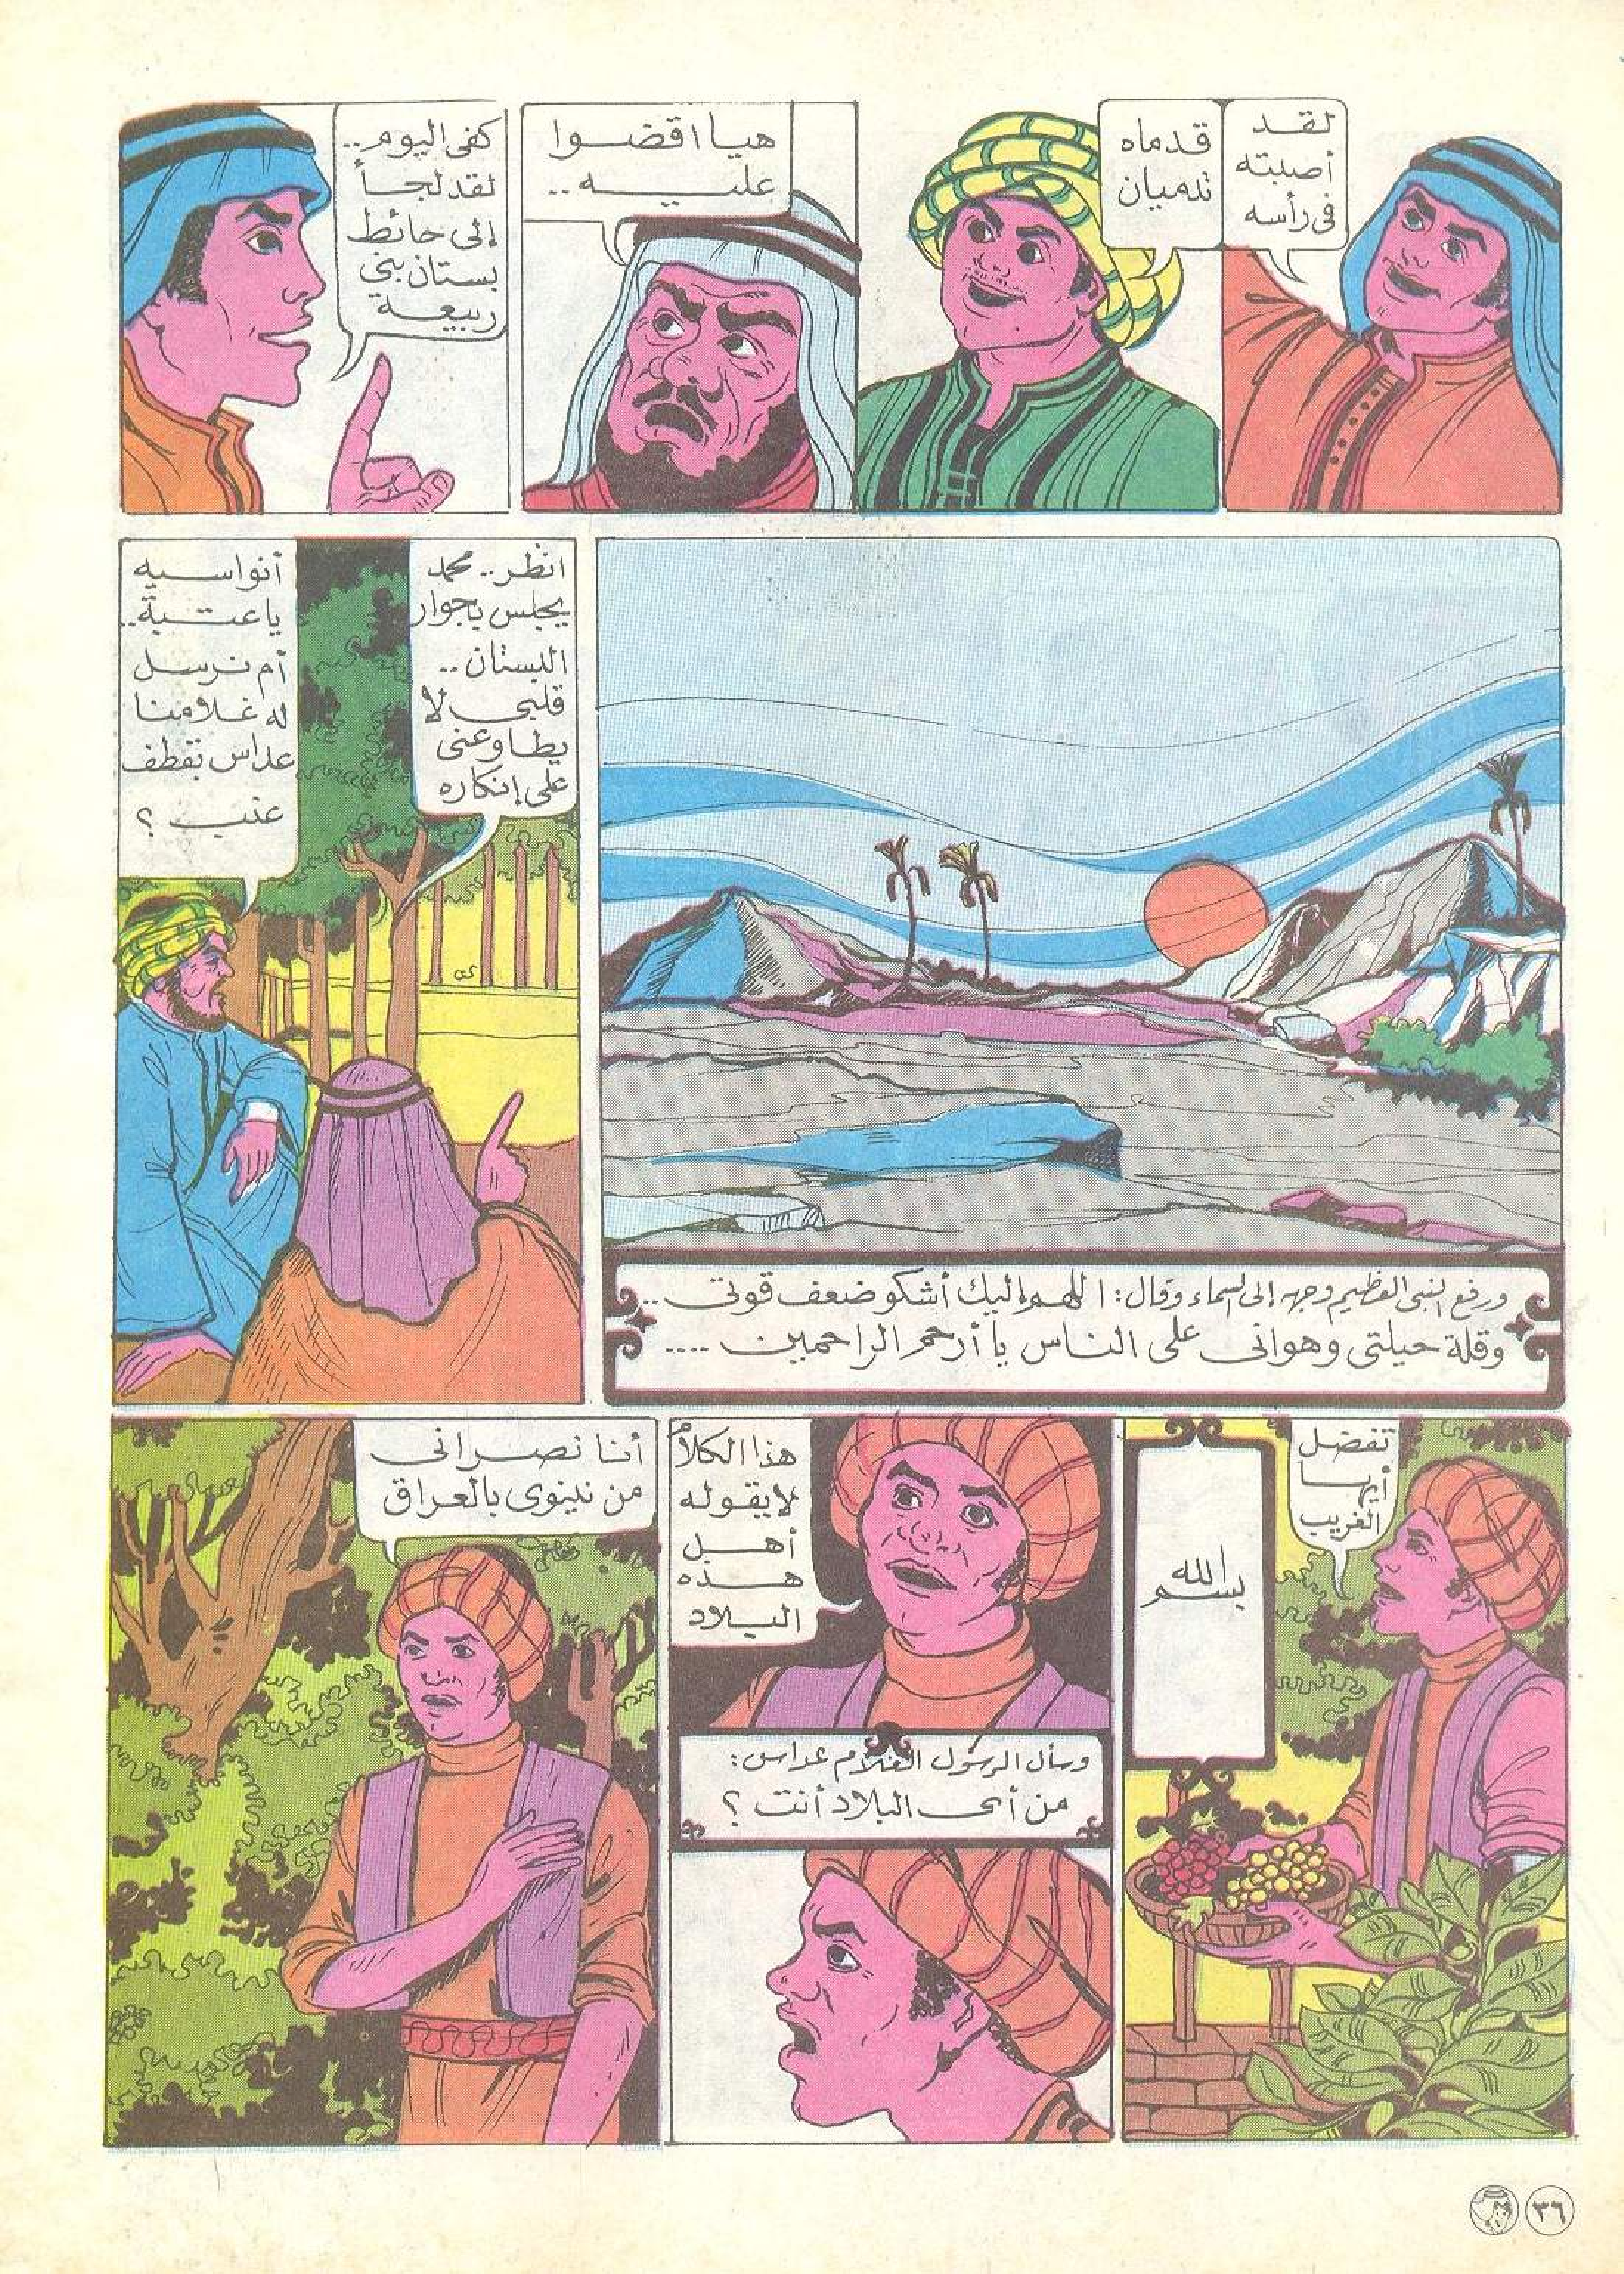 لقد
أصبته
فى رأسه
قدماه
تدميان
هيا اقضوا
عليه ..
كفى اليوم ..
لقد لجأ
إلى حائط
بستان بنى
ربيعة
ورفع النبى العظيم وجهه إلى السماء وقال : اللهم إليك أشكو ضعف قوتى ..
وقلة حيلتى وهوانى على الناس يا أرحم الراحمين ....
انظر .. محمد
يجلس بجوار
البستان ..
قلبى لا
يطاوعنى
على إنكاره
أنواسيه
يا عتبة ..
أم نرسل
له غلامنا
عداس بقطف
عنب ؟
تفضل
أيها
الغريب
بسم الله
هذا الكلام
لا يقوله
أهل
هذه
البلاد
وسأل الرسول الغلام عداس :
من أى البلاد أنت ؟
أنا نصرانى
من نينوى بالعراق
٣٦